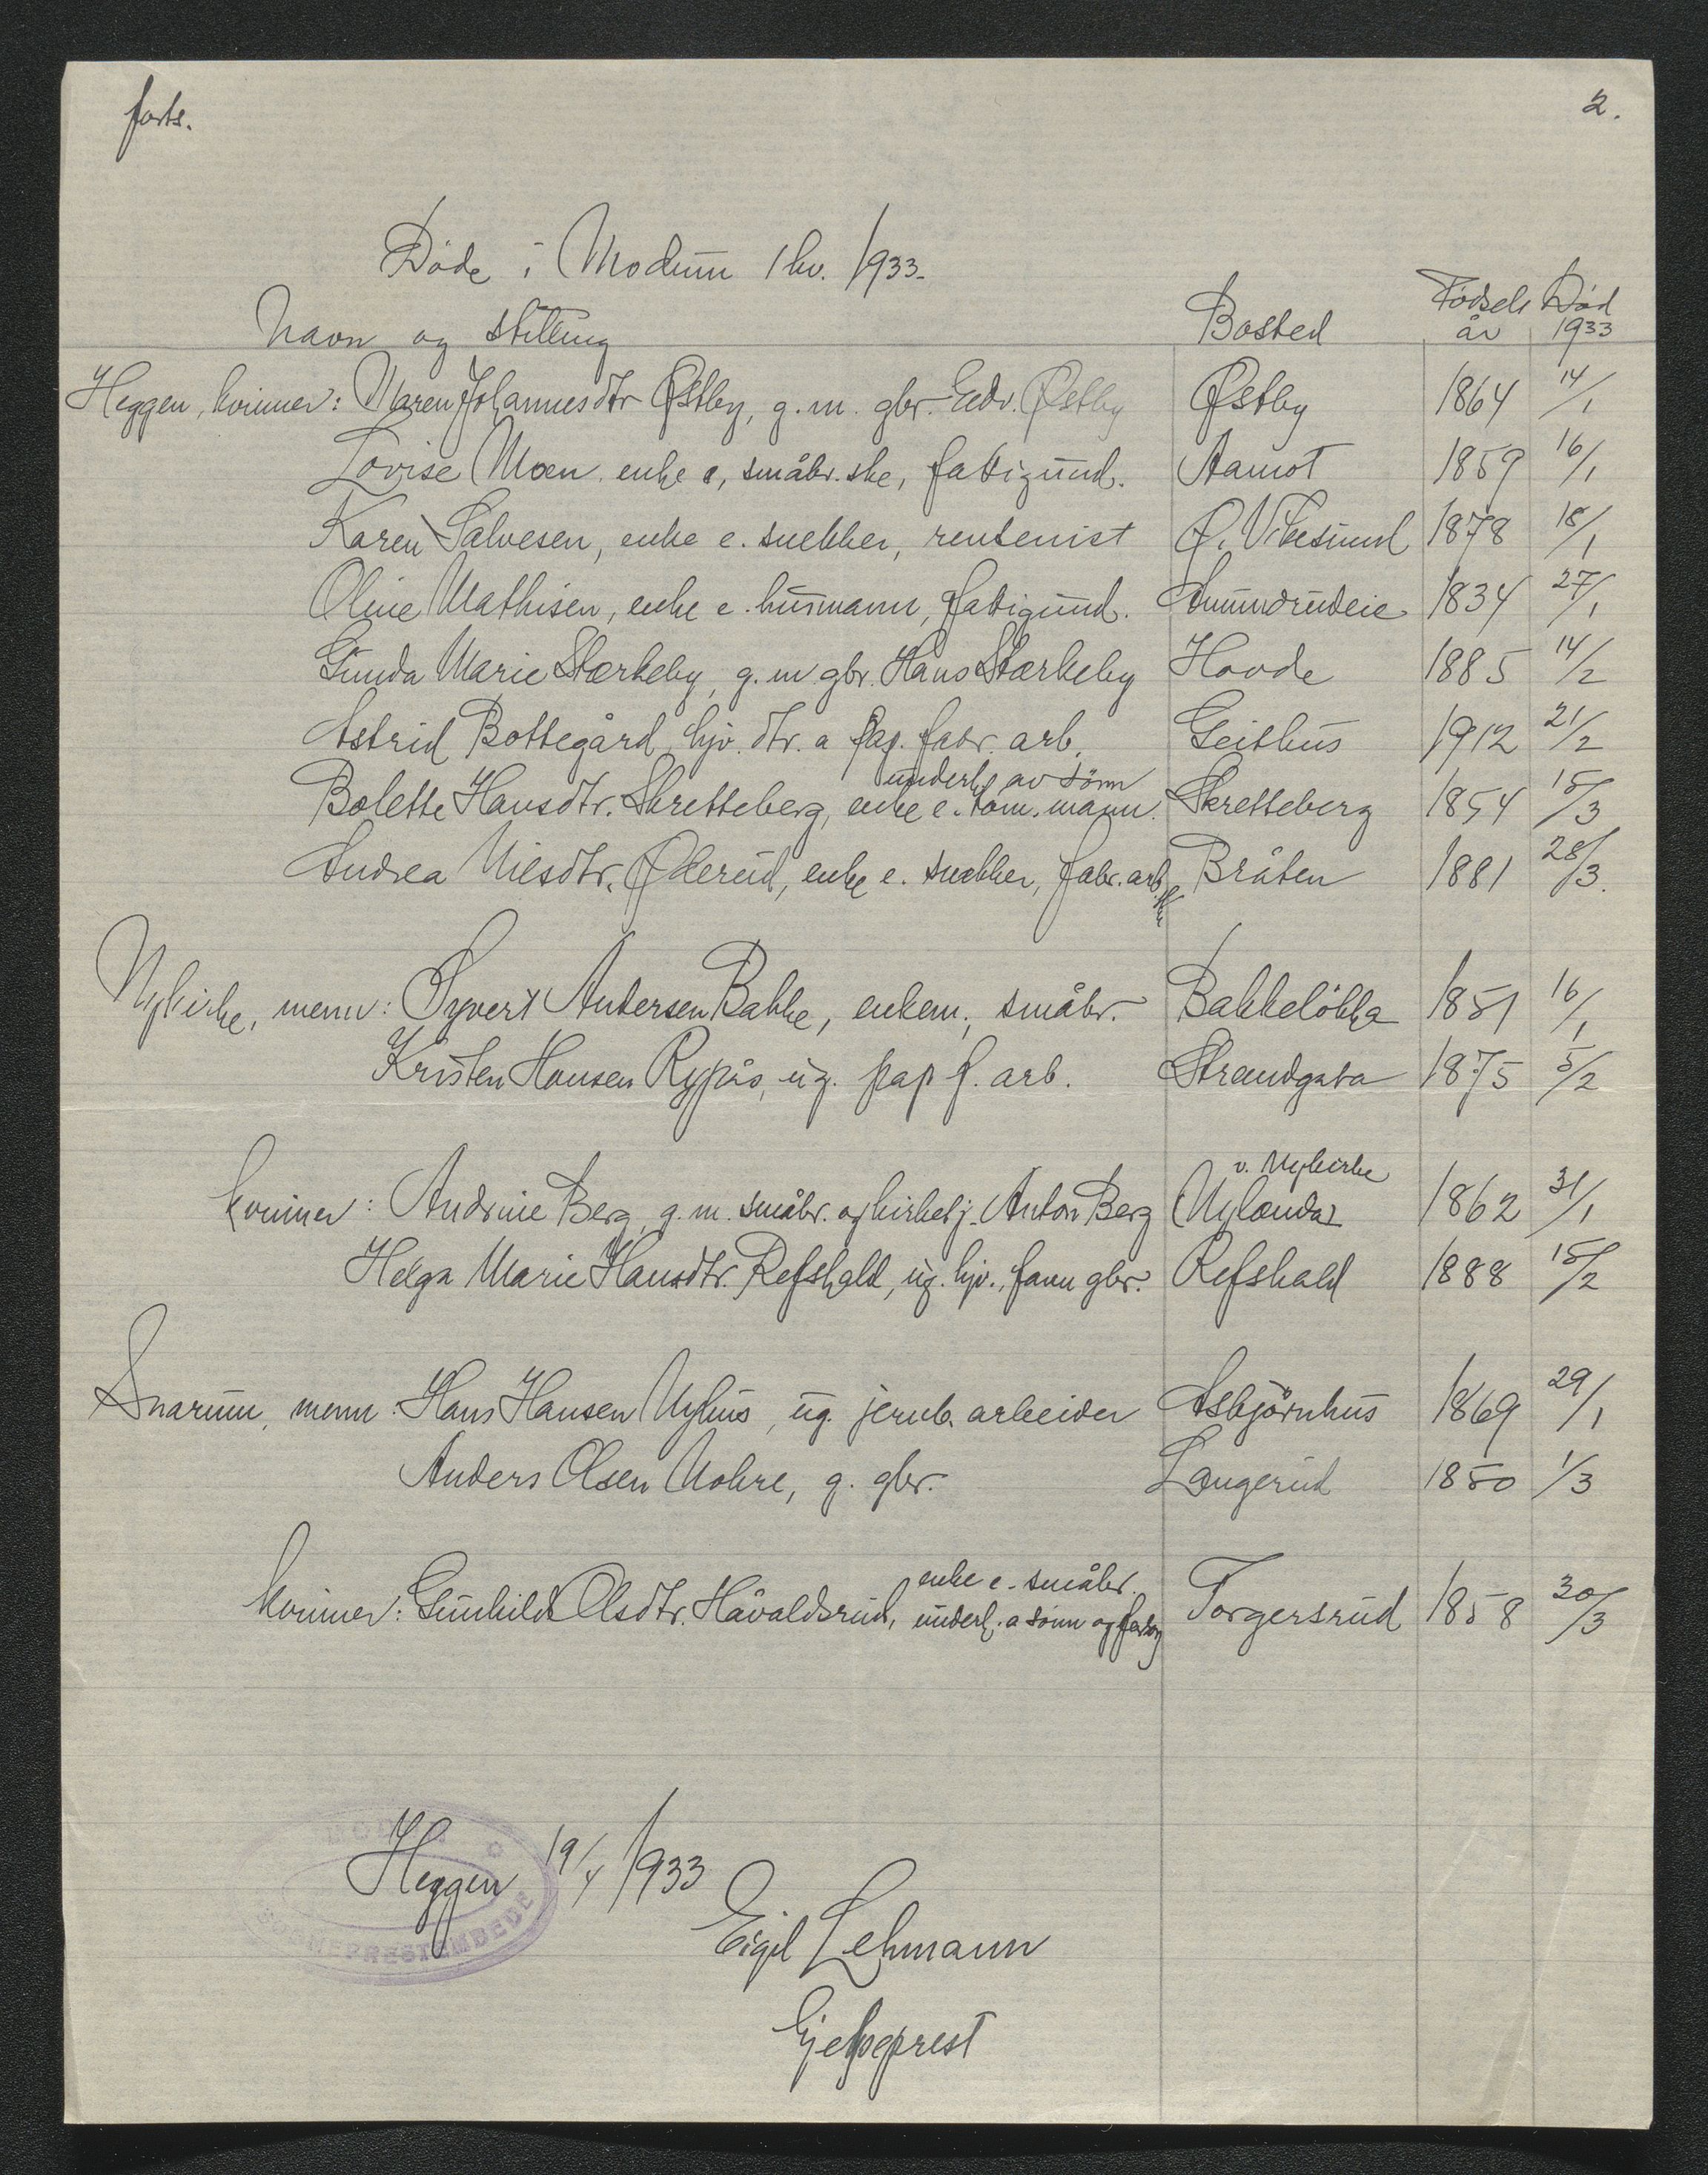 forts. 2.
Døde i Modum 1 kv. 1933.
Navn og stilling Bosted Fødsels år Død 1933
Heggen, kvinner: Maren Johannesdtr Østby, g. m. gbr. Edv. Østby Østby 1864 14/1
Lovise Moen enke e, småbr. ske, fattigund. Aamot 1859 16/1
Karen Salvesen, enke e. snekker, rentenist Ø. Vikesund 1878 18/1
Oline Mathisen, enke e. husmann, fattigund. Amundrudeie 1834 27/1
Gunda Marie Stærkeby, g. m. gbr. Hans Stærkeby Hovde 1885 14/2
Astrid Bottegård, hjv. dtr. a pap. fabr. arb. Geithus 1912 21/2
underh. av sønn
Bolette Hansdtr. Skretteberg, enke e. tøm. mann. Skretteberg 1854 15/3
Andrea Nilsdtr. Ødereud, enke e. snekker, fabr. arb. Bråten 1881 28/3.
Nykirke, menn: Syvert Andersen Bakke, enkem., småbr. Bakkeløkka 1851 16/1
Kristen Hansen Rypås, ug. pap f. arb. Strandgata 1875 5/2
v. Nykirke
kvinner: Andrine Berg, g. m. småbr. og kirketj. Anton Berg Nylænda 1862 31/1
Helga Marie Hansdtr. Refshald, ug. hjv., fam gbr. Refshald 1888 15/2
Snarum, menn: Hans Hansen Nyhus, ug. jernb. arbeider Asbjørnhus 1869 29/1
Anders Olsen Mohre, g. gbr. Langerud 1850 1/3
enke e. småbr.
kvinner: Gunhild Olsdtr. Håvaldsrud, underh. a sønn og forsorg Torgersrud 1858 30/3
Heggen 19/4 1933
PRESTEMBEDE
Eigil Lehmann
hjelpeprest